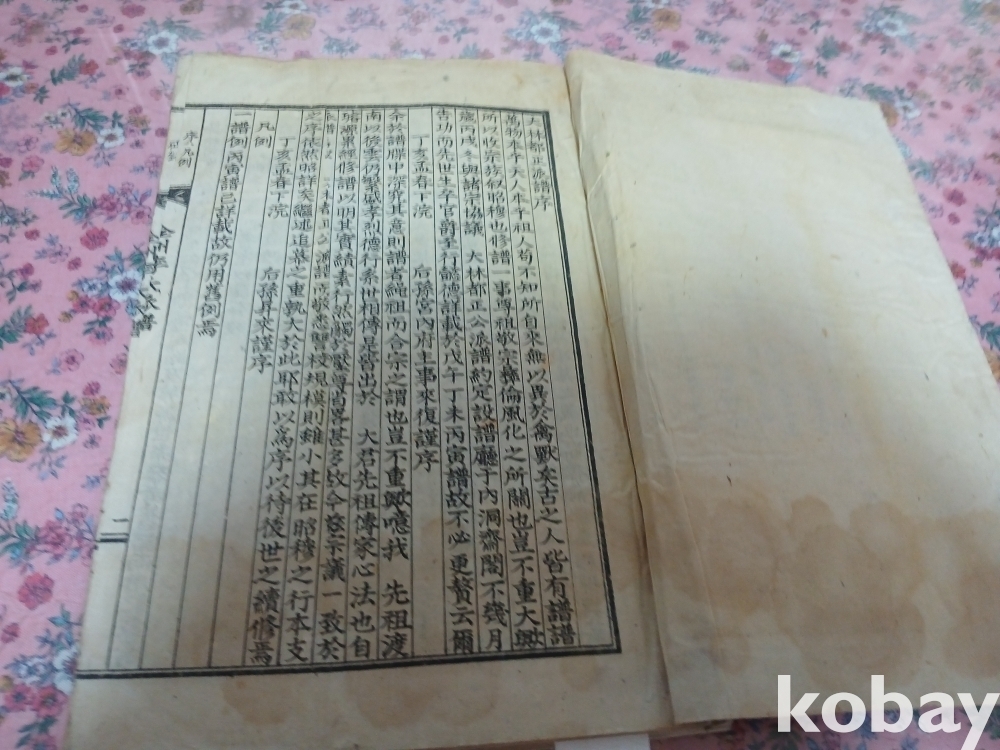 大林都正派譜序
萬物本乎天人本乎祖人苟不知所自來無以異於禽獸矣古之人皆有譜譜
所以收宗族叙昭穆也修譜一事尊祖敬宗彝倫風化之所關也豈不重大歟
歲丙戌冬與諸宗協議 大林都正公派譜約定設譜廳于內洞齋閣不幾月
告功而先世生卒官爵至行懿德詳載於戊午丁未丙寅譜故不必更贅云爾
丁亥孟春下浣 后孫宮內府主事來復謹序
余於譜牒中深究其意則譜者繩祖而合宗之謂也豈不重歟噫我 先祖渡
南以後雲仍繁盛孝烈德行系世相傳是皆出於 大君先祖傳家心法也自
累經修譜以明其實績素行然
今發宗議一致於
規模則雖小其在昭穆之行本支
之序依然昭詳矣繼述追慕之重孰大於此耶敢以爲序以待後世之續修焉
丁亥孟春下浣 后孫昇來謹序
凡例
一譜例丙寅譜已詳載故仍用舊例焉
序 凡例
二
kobay